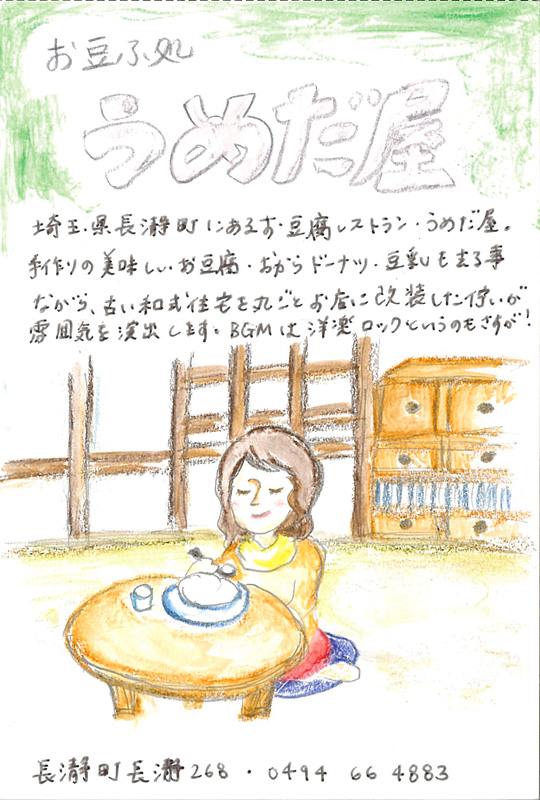 お豆ふ処
うめだ屋
埼玉県長瀞町にあるお豆腐レストラン・うめだ屋。
手作りの美味しいお豆腐・おからドーナツ・豆乳も去る事
ながら、古い和式住宅を丸ごとお店に改装した佇いが
雰囲気を演出します。BGMは洋楽ロックというのもさすが!
長瀞町長瀞268・0494 66 4883